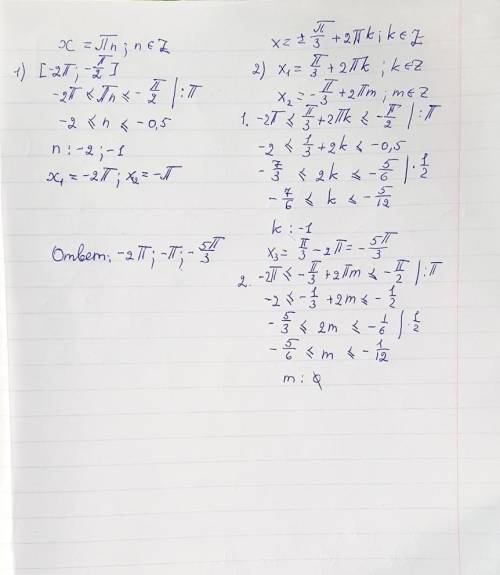 x = πn ; n ∈ Z
1) [-2π; -π/2]
-2π ≤ πn ≤ -π/2 | :π
-2 ≤ n ≤ -0,5
n : -2 ; -1
x₁ = -2π ; x₂ = -π
Ответ: -2π; -π; -5π/3
x = ± π/3 + 2πk ; k ∈ Z
2) x₁ = π/3 + 2πk ; k ∈ Z
x₂ = -π/3 + 2πm ; m ∈ Z
1. -2π ≤ π/3 + 2πk ≤ -π/2 | :π
-2 ≤ 1/3 + 2k ≤ -0,5
-7/3 ≤ 2k ≤ -5/6 | ·1/2
-7/6 ≤ k ≤ -5/12
k : -1
x₃ = π/3 - 2π = -5π/3
2. -2π ≤ -π/3 + 2πm ≤ -π/2 | :π
-2 ≤ -1/3 + 2m ≤ -1/2
-5/3 ≤ 2m ≤ -1/6 | ·1/2
-5/6 ≤ m ≤ -1/12
m : ∅